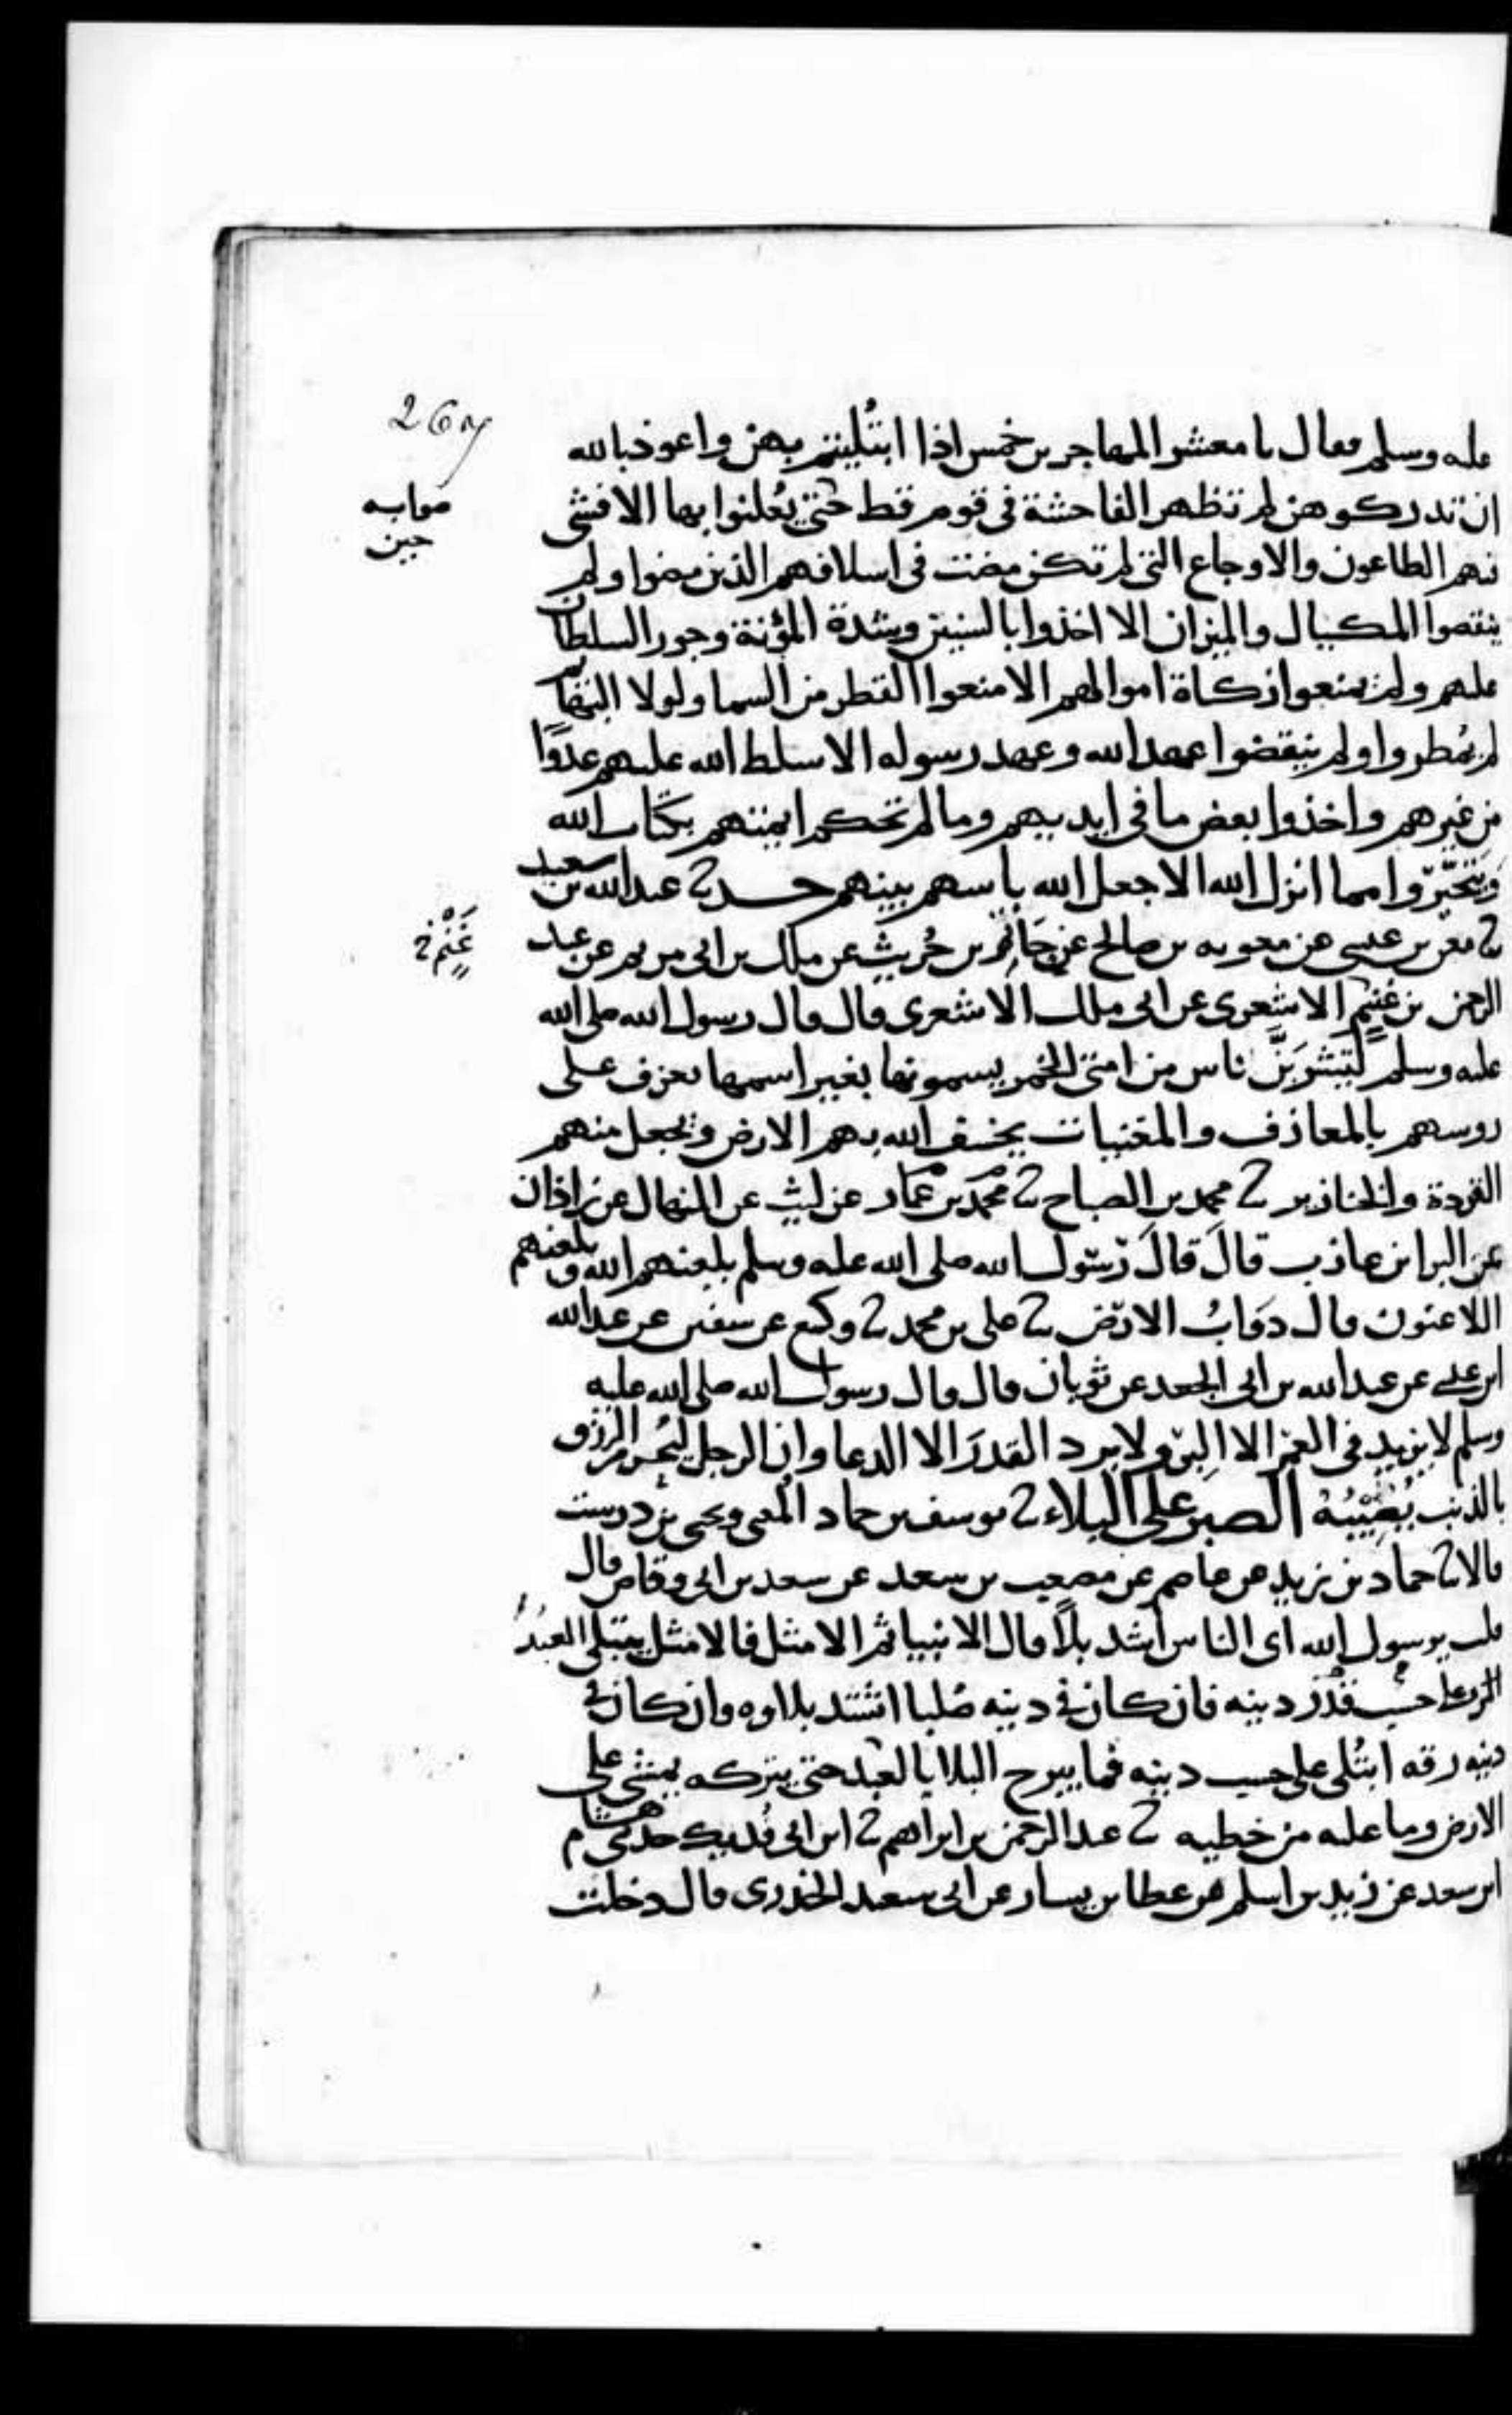 267
عليه وسلم فقال يا معشر المهاجرين خمس اذا ابتُليتم بهن واعوذ بالله
ان تدركوهن لم تظهر الفاحشة في قوم قط حتى يُعلنوا بها الا فشى
صوابه
حين
فيهم الطاعون والاوجاع التي لم تكن مضت في اسلافهم الذين مضوا ولم
ينقصوا المكيال والميزان الا اخذوا بالسنين وشدة المؤنة وجور السلطان
عليهم ولم يمنعوا زكاة اموالهم الا منعوا القطر من السما ولولا البهايم
لم يُمطروا ولم ينقضوا عهد الله وعهد رسوله الا سلط الله عليهم عدوًا
من غيرهم واخذوا بعض ما في ايديهم وما لم تحكم ايمتهم بكتاب الله
وَيَتَخَيَّرُوا مما انزل الله الا جعل الله باسهم بينهم حدثنا عبد الله بن سعيد
ثنا معن بن عيسى عن معويه بن صالح عن حَاتِم بن حُريث عن ملك بن ابي مريم عن عبد
غَنْم
الرحمن بن غنم الاشعري عن ابي ملك الاشعري قال قال رسول الله صلى الله
عليه وسلم لَيَشْرَبَنَّ ناس من امتي الخمر يسمونها بغير اسمها يعزف على
روسهم بالمعازف والمغنيات يخسف الله بهم الارض ويجعل منهم
القردة والخنازير ثنا محمد بن الصباح ثنا محمد بن عمار عن ليث عن المنهال عن زاذان
عن البرا بن عازب قالَ قالَ رَسُول الله صلى الله عليه وسلم يلعنهم الله ويلعنهم
اللاعنون قال دَوَابُ الارض ثنا علي بن محمد ثنا وكيع عن سفين عن عبد الله
ابن عيسى عن عبد الله بن ابي الجعد عن ثوبان قال قال رسول الله صلى الله عليه
وسلم لا يزيد في العمر الا البِرّ ولا يرد القدرَ الا الدعا وان الرجل ليُحرم الرزق
بالذنب يُصِيْبُهُ الصبر على البلاء ثنا يوسف بن حماد المُعني ويحيى بن درست
قالا ثنا حماد بن زيد عن عاصم عن مصعب بن سعد عن سعد بن ابي وقاص قال
قلت يرسول الله اى الناس اشد بلاً قال الانبيا ثم الامثل فالامثل يبتلى العبدُ
على حسب قَدْر دينه فان كان في دينه صُلبا اشتد بلاوه وان كان في
دينه رقه ابتُلى على حسب دينه فما يبرح البلا يا لعبد حتى يتركه يمشي على
الارض وما عليه من خطيه ثنا عبد الرحمن بن ابراهيم ثنا ابن ابي فُديك حدثني هشام
ابن سعد عن زيد بن اسلم عن عطا بن يسار عن ابي سعيد الخدري قال دخلت